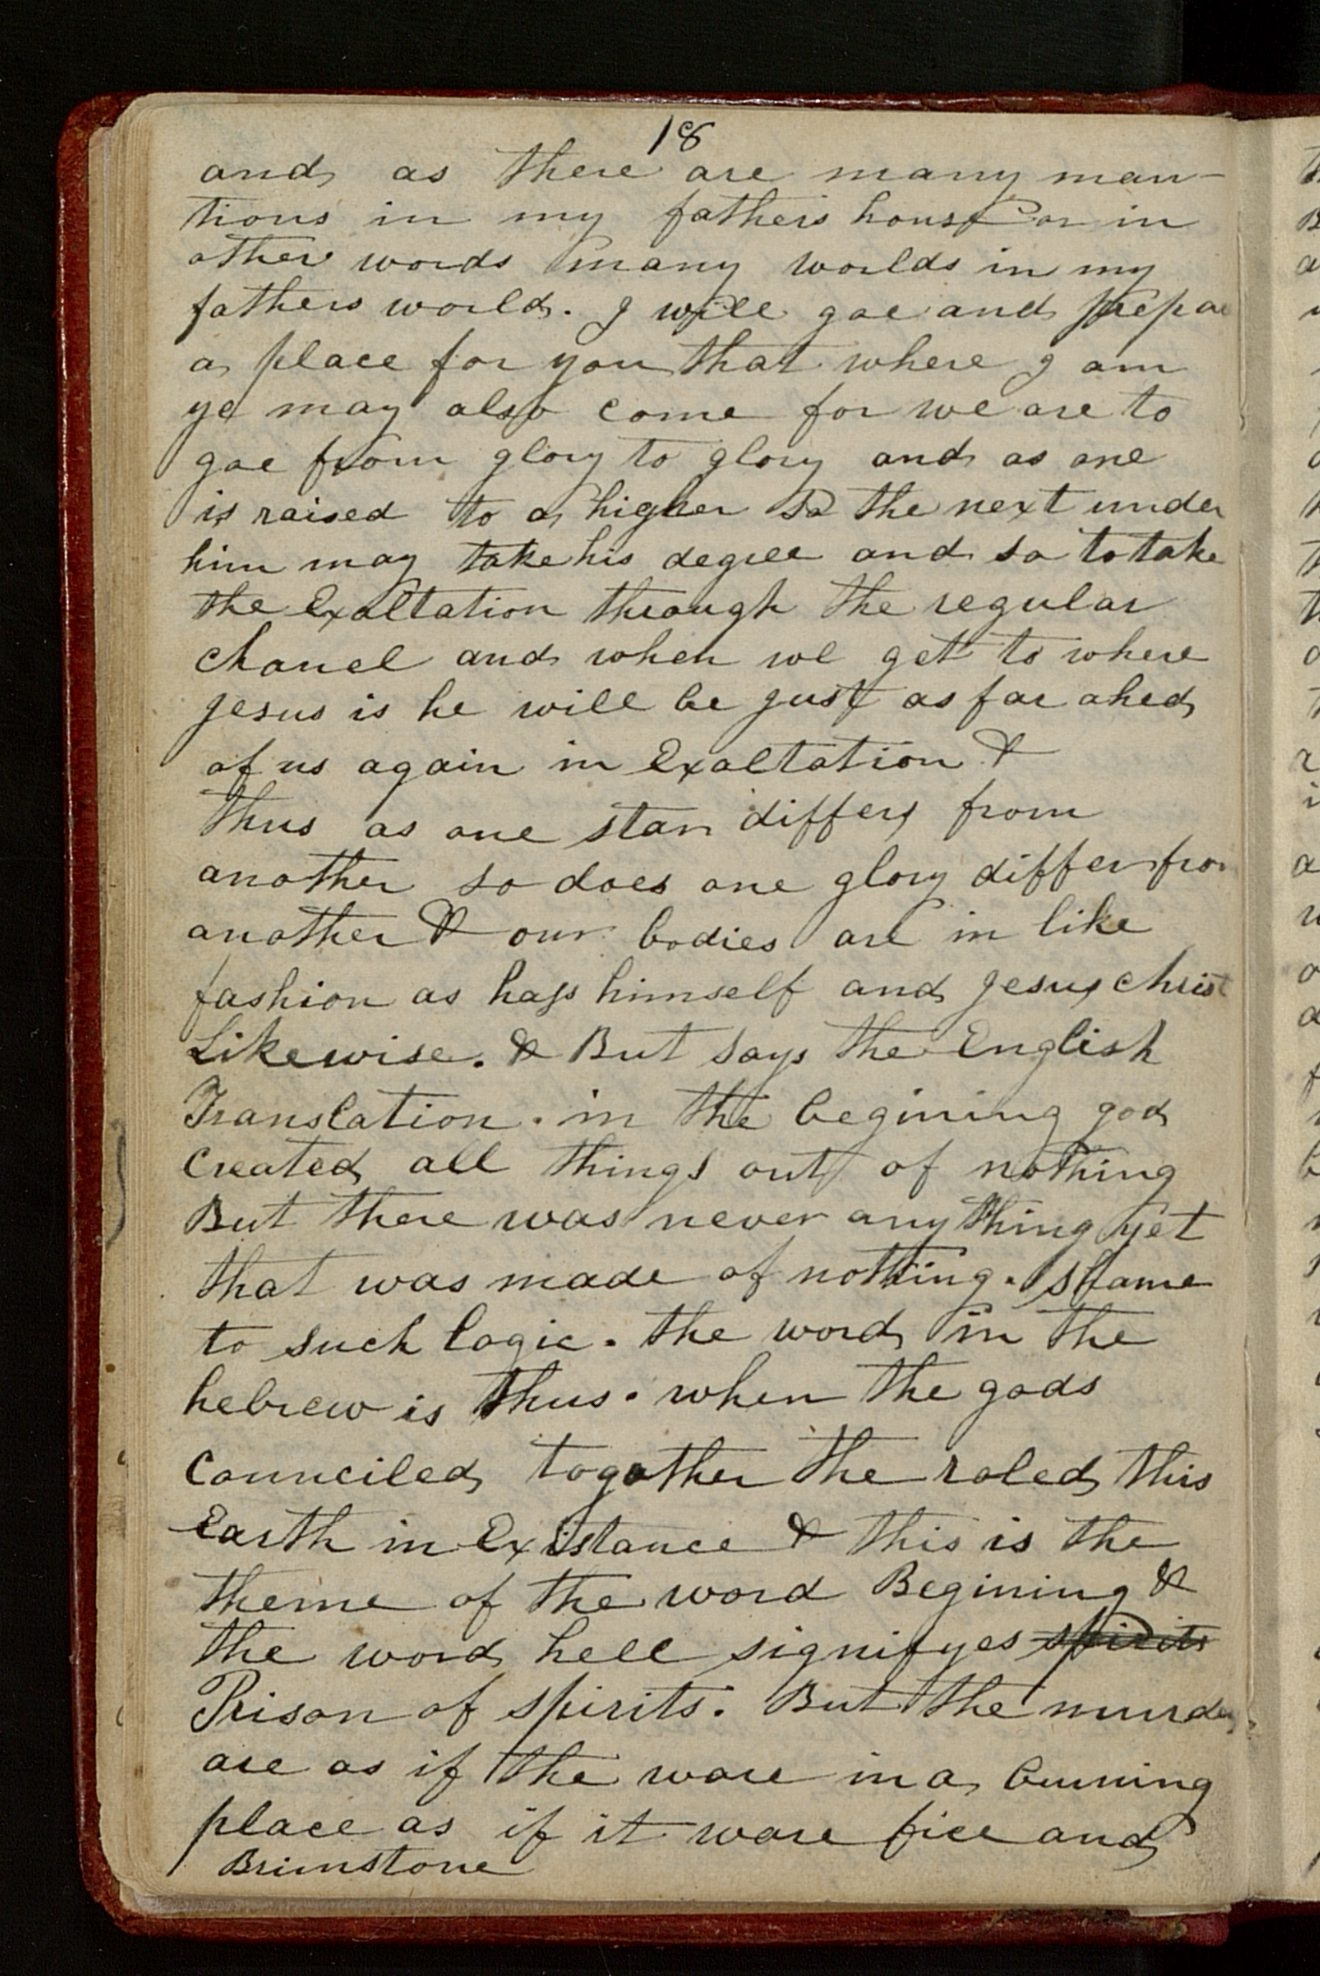 18
and as there are many man-
tions in my fathers house or in
other words many worlds in my
fathers world. I will goe and prepar
a place for you that where I am
ye may also come for we are to
goe from glory to glory and as one
is raised to a higher so the next under
him may take his degree and so to take
the Exaltation through the regular
chanel and when we get to where
Jesus is he will be just as far ahed
of us again in Exaltation &
thus as one star differs from
another so does one glory differ from
another & our bodies are in like
fashion as himself and Jesus Christ
Likewise. & But says the English
Translation. in the begining god
created all things out of nothing
But there was never any thing yet
that was made of nothing. Shame
to such logic. the word in the
hebrew is thus. when the gods
counciled together the roled this
Earth in Existance & this is the
theme of the word Begining &
the word hell signifyes spirits
Prison of spirits. But the minde
are as if the ware in a burning
place as if it ware fire and
Brimstone